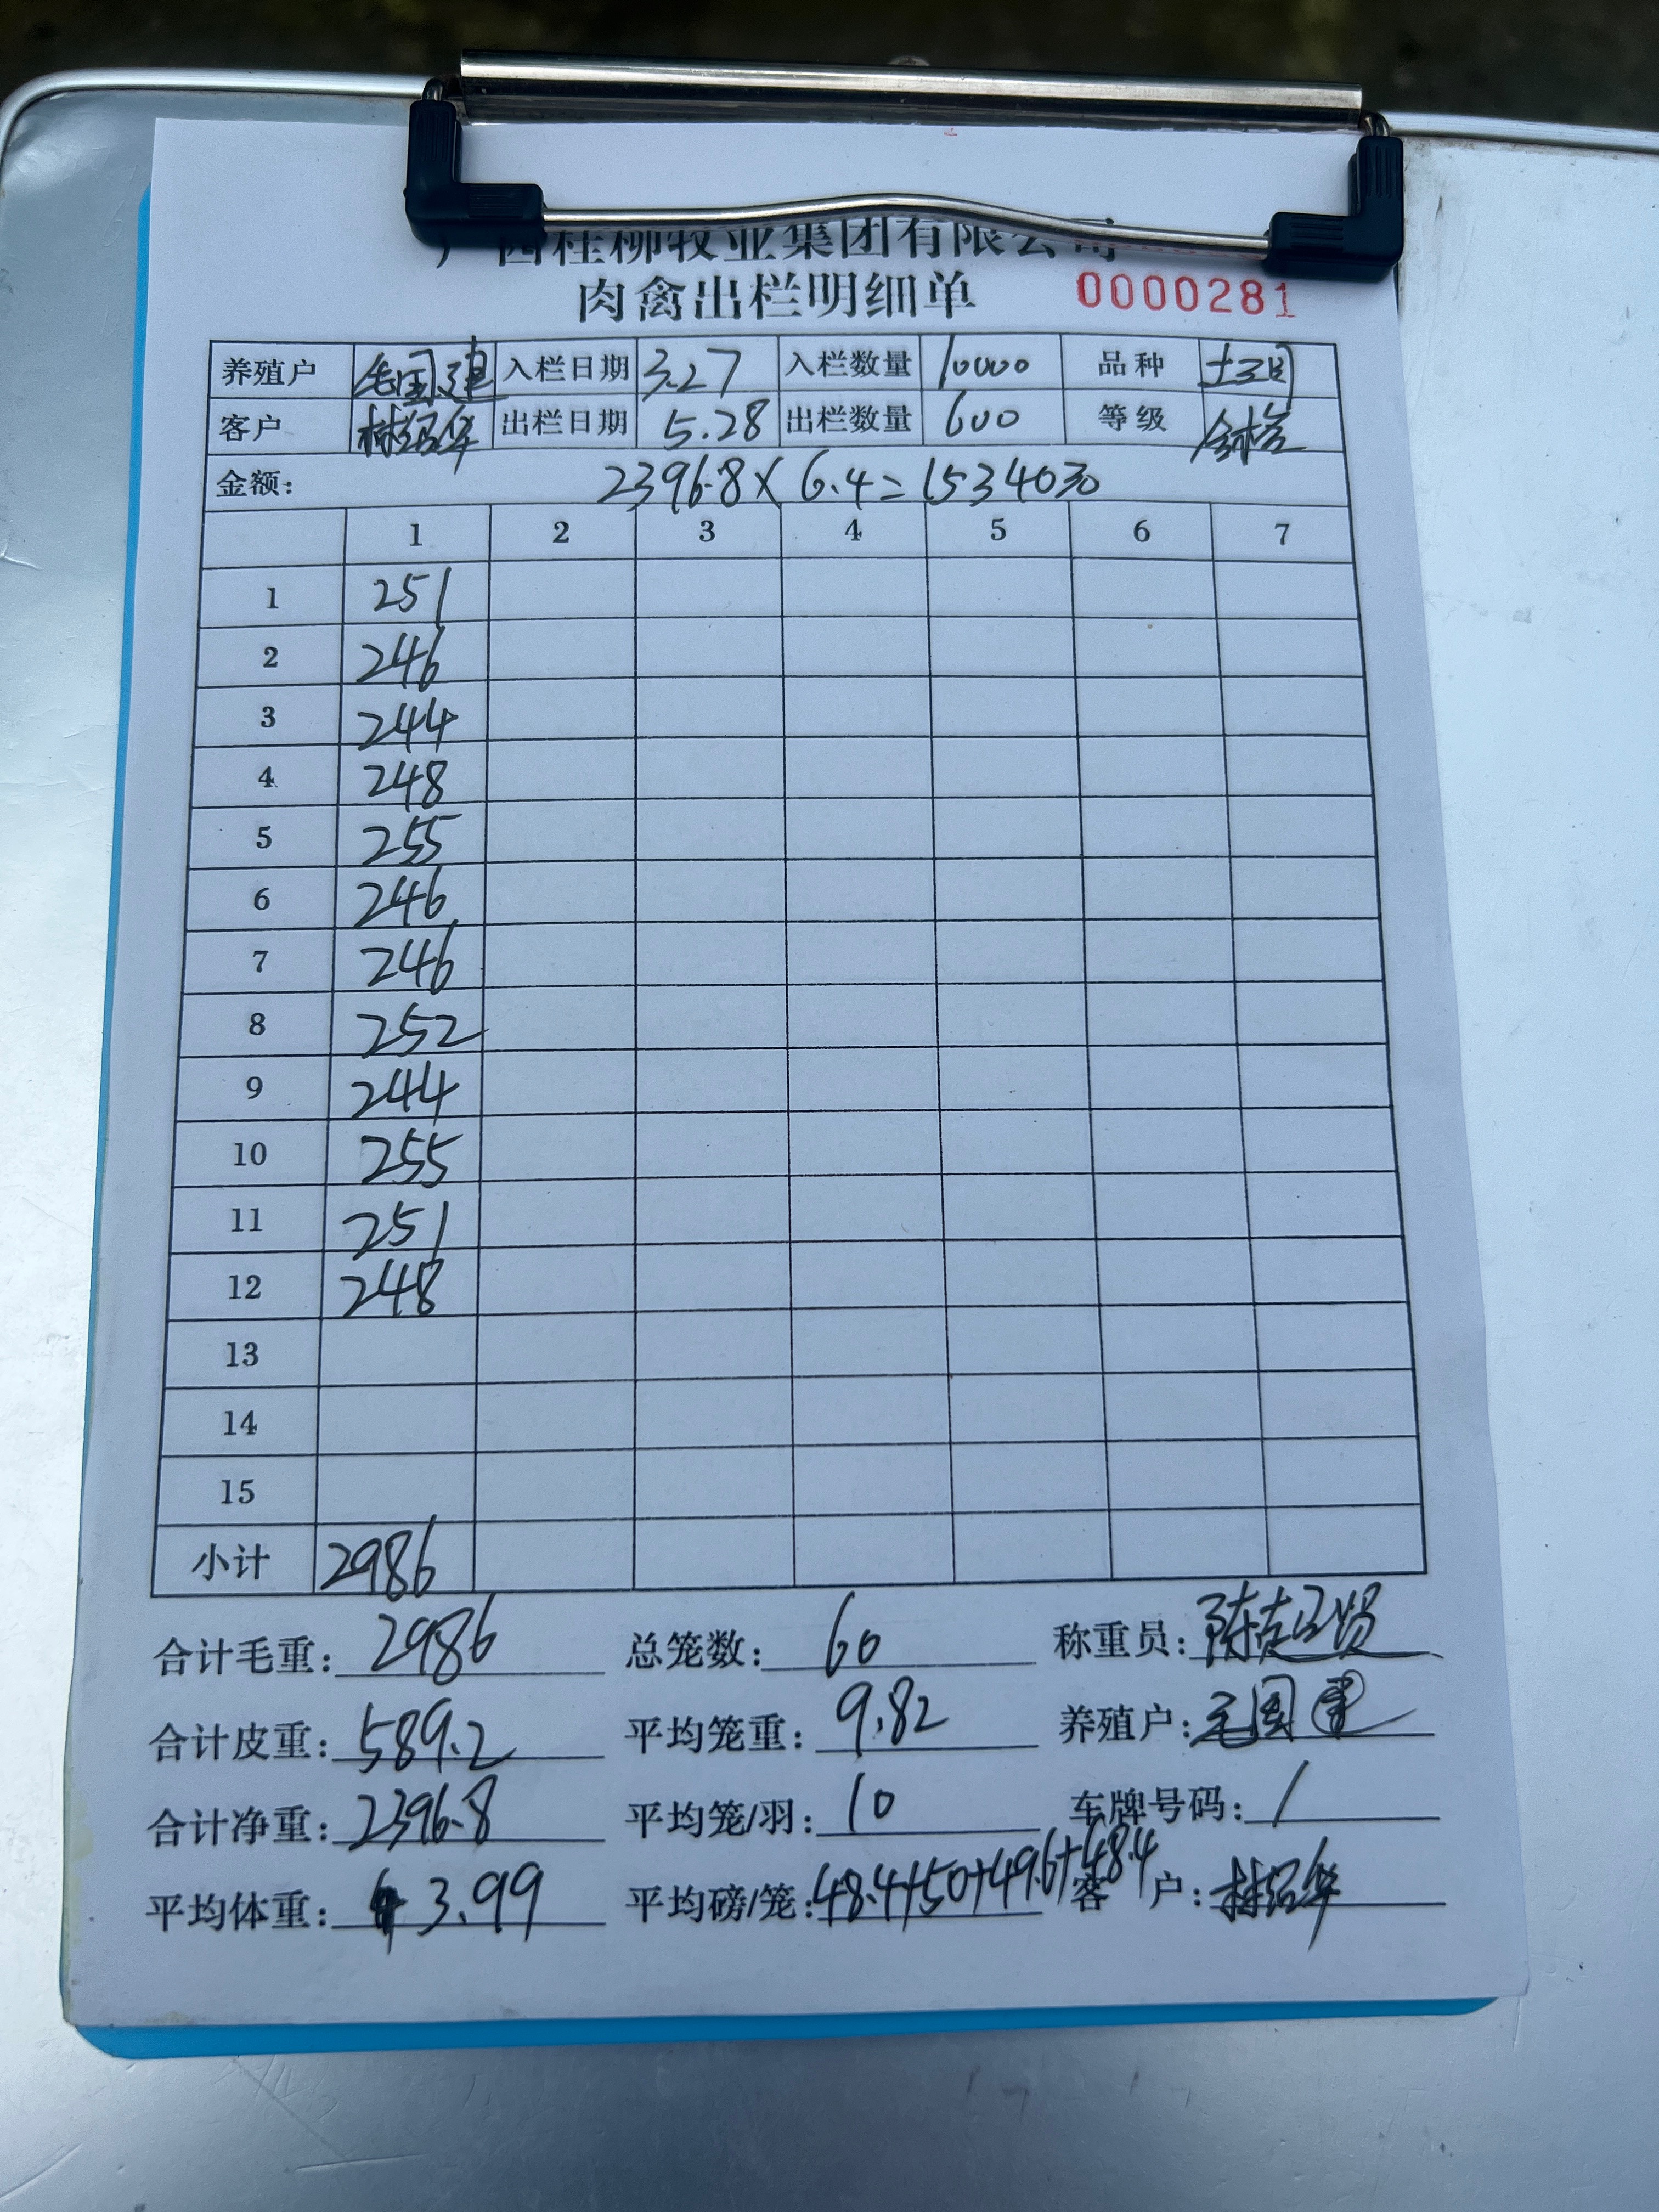 广西桂柳牧业集团有限公司
肉禽出栏明细单 0000281
养殖户 毛国建 入栏日期 3.27 入栏数量 10000 品种
客户 林绍华 出栏日期 5.28 出栏数量 600 等级 合格
金额: 2396.8×6.4=15340元
1 2 3 4 5 6 7
1 251
2 246
3 244
4 248
5 255
6 246
7 246
8 252
9 244
10 255
11 251
12 248
13
14
15
小计 2986
合计毛重: 2986 总笼数: 60 称重员:
合计皮重: 589.2 平均笼重: 9.82 养殖户: 毛国建
合计净重: 2396.8 平均笼/羽: 10 车牌号码: /
平均体重: 3.99 平均磅/笼: 48.4+50+49.6+48.4 客户: 林绍华